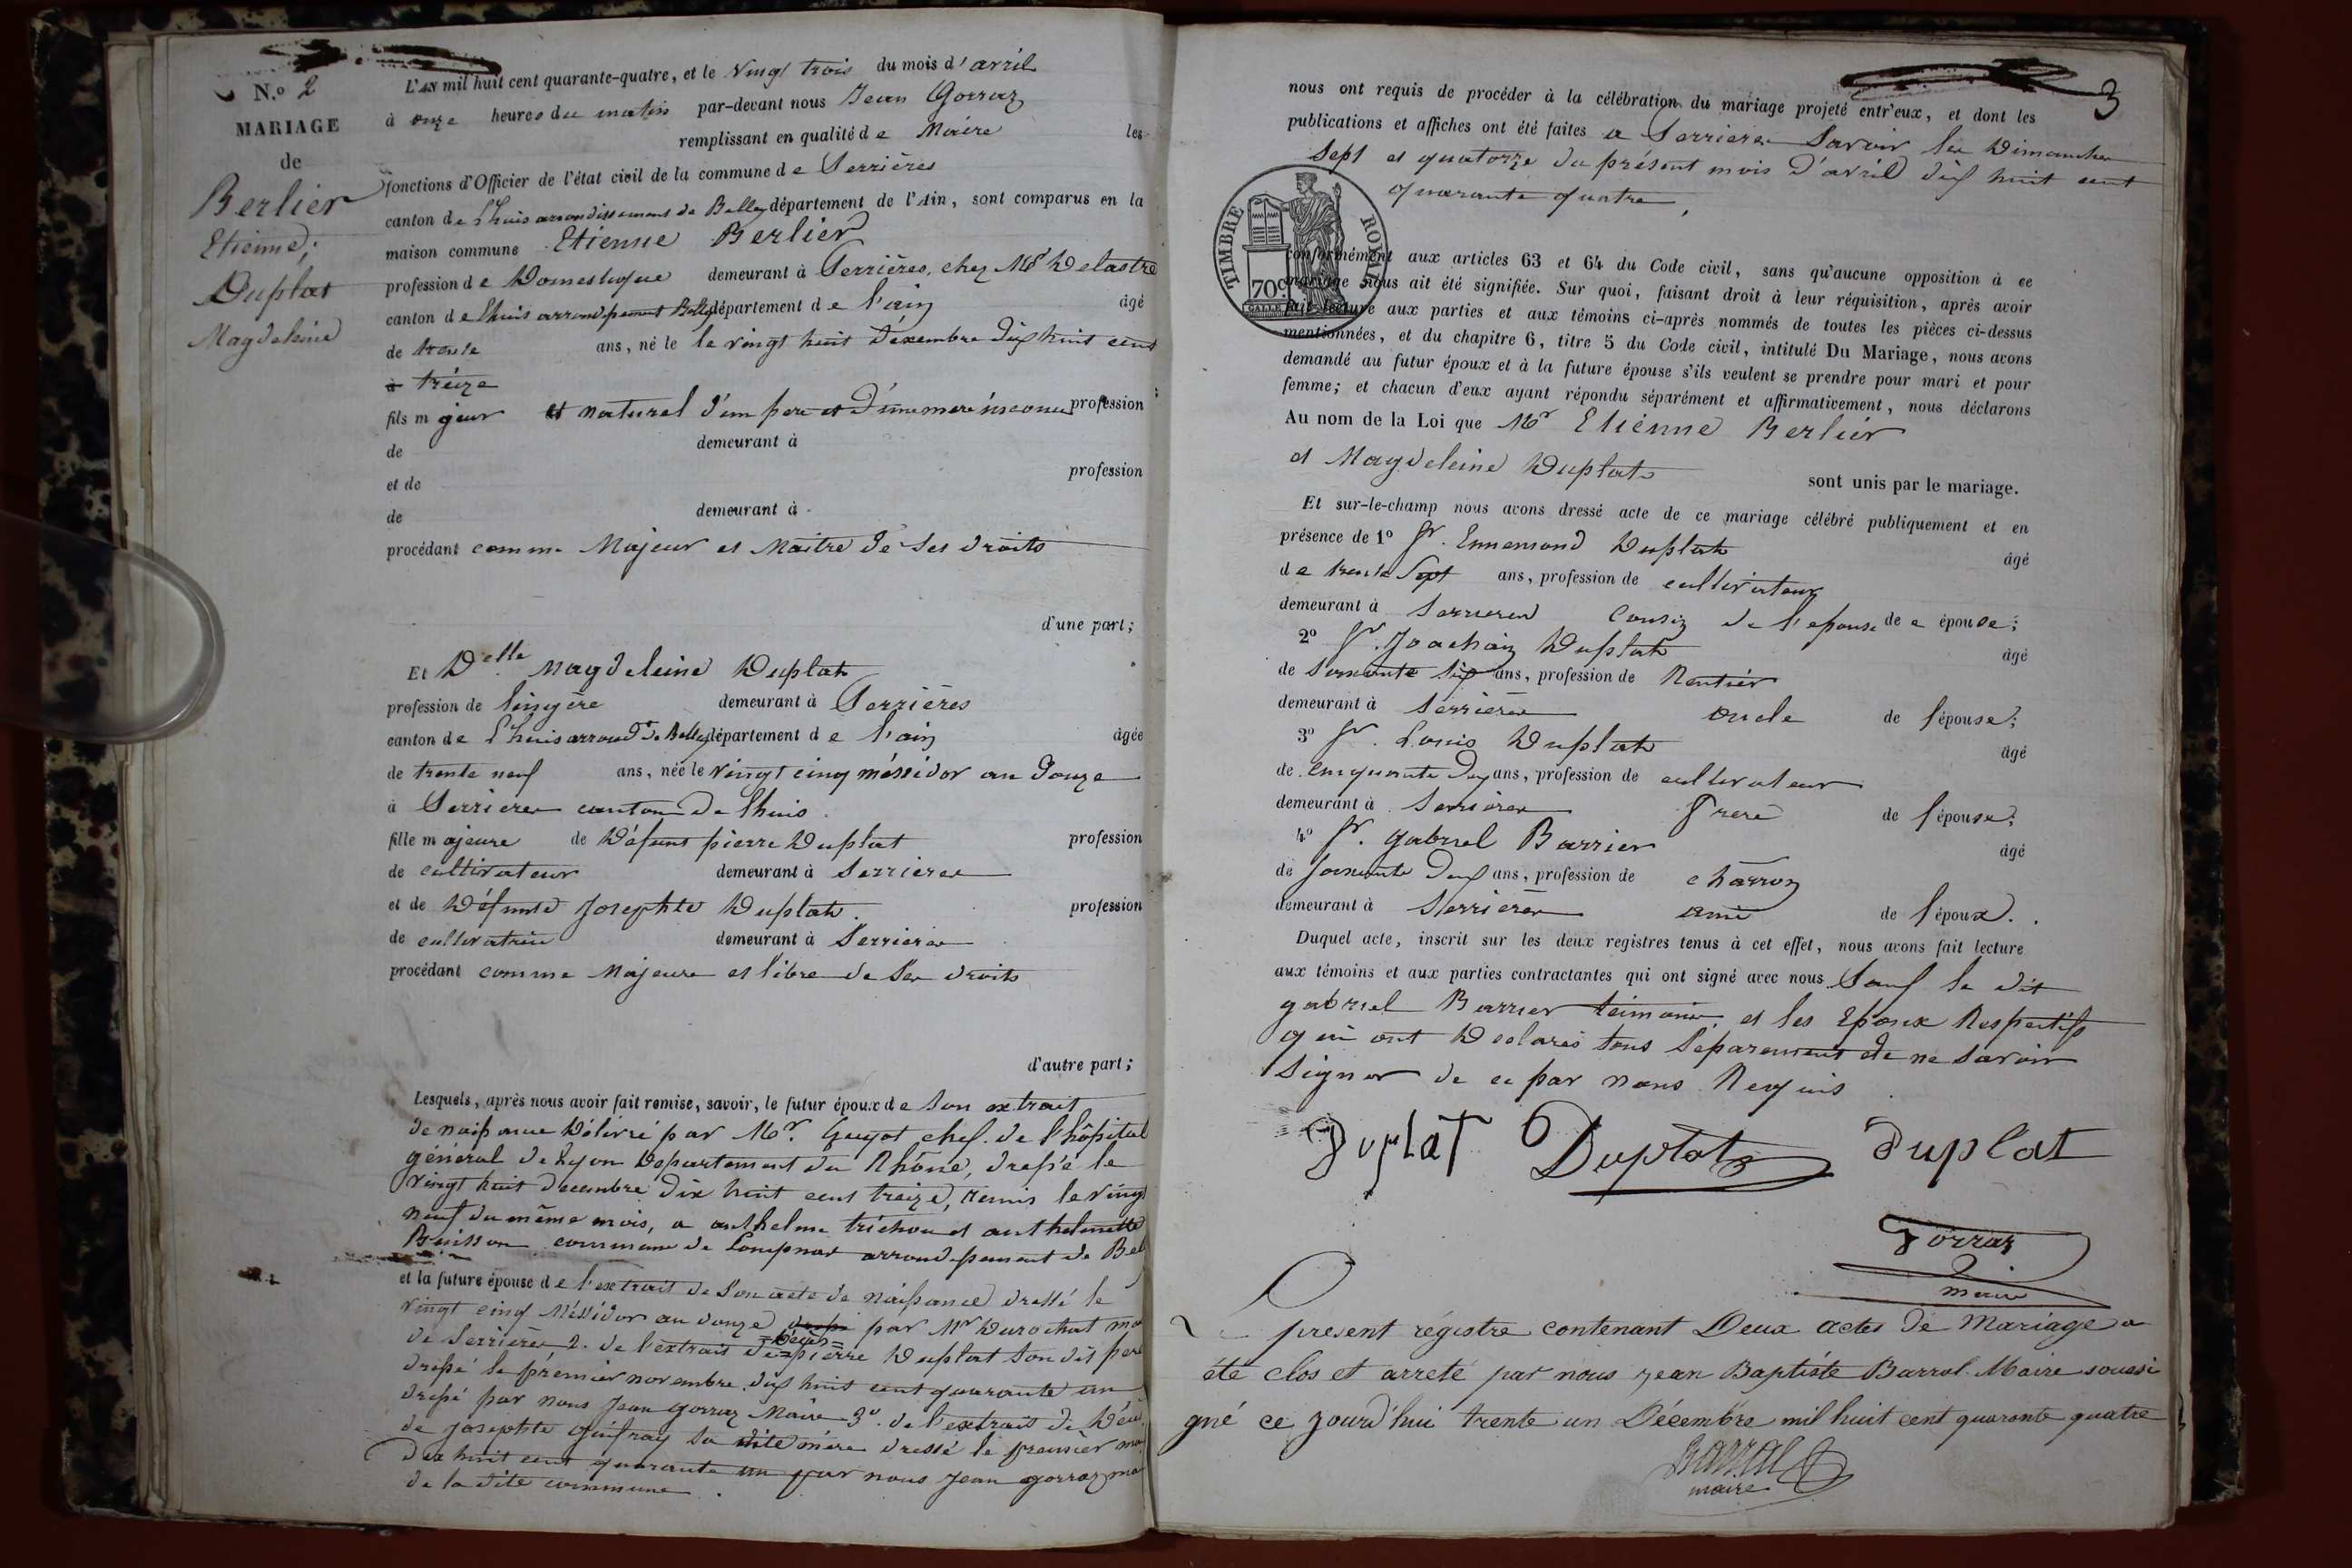 N.o 2
MARIAGE
de
Berlier
Etienne;
Duplat
Magdeleine
L'AN mil huit cent quarante-quatre, et le vingt trois du mois d'avril
à onze heures du matin par-devant nous Jean Gorraz
remplissant en qualité de Maire les
fonctions d'Officier de l'état civil de la commune de Serrières
canton de Lhuis arrondissement de Belley département de l'Ain, sont comparus en la
maison commune Etienne Berlier
profession de Domestique demeurant à Serrières, chez Mr Delastre
canton de Lhuis arrondissement Belley département de l'ain âgé
de trente ans, né le le vingt huit Décembre dix huit cent
à treize
fils majeur et naturel d'un pere et d'une mere inconnu profession
de demeurant à
et de profession
de demeurant à
procédant comme Majeur et Maitre de ses droits
d'une part;
Et Delle Magdeleine Duplat
profession de lingère demeurant à Serrières
canton de Lhuis arrondt de Belley département de l'ain âgée
de trente neuf ans, née le vingt cinq méssidor an douze
à Serrieres canton de lhuis
fille majeure de Défunt pierre Duplat profession
de cultivateur demeurant à Serrieres
et de Défunte Josephte Duplat. profession
de cultivatrice demeurant à Serrieres
procédant comme Majeure et libre de ses droits
d'autre part;
Lesquels, après nous avoir fait remise, savoir, le futur époux de son extrait
de naissance délivré par Mr. Guyot chef de l'hôpital
général de Lyon Département du Rhône, dressé le
vingt huit decembre dix huit cent treize, remis le vingt
neuf du même mois, a anthelme trichon et anthelmette
Buisson commune de Lompnas arrondissement de Bel
et la future épouse de l'extrait de son acte de naissance dressé le
vingt cinq Méssidor an douze par Mr Durochat ma
de Serrieres 2. de l'extrait de décès pierre Duplat son dit pere
dressé le premier novembre dix huit cent quarante un
dressé par nous Jean gorraz Maire 3o. de l'extrait de Décé
de Josephte sa dite mère dressé le premier ma
dix huit cent quarante un par nous Jean gorraz ma
de la dite commune.
3
nous ont requis de procéder à la célébration du mariage projeté entr'eux, et dont les
publications et affiches ont été faites a Serrieres Savoir les Dimanches
Sept et quatorze du présent mois d'avril dix huit cent
quarante quatre,
TIMBRE ROYAL
70c
conformément aux articles 63 et 64 du Code civil, sans qu'aucune opposition à ce
mariage nous ait été signifiée. Sur quoi, faisant droit à leur réquisition, après avoir
fait lecture aux parties et aux témoins ci-après nommés de toutes les pièces ci-dessus
mentionnées, et du chapitre 6, titre 5 du Code civil, intitulé Du Mariage, nous avons
demandé au futur époux et à la future épouse s'ils veulent se prendre pour mari et pour
femme; et chacun d'eux ayant répondu séparément et affirmativement, nous déclarons
Au nom de la Loi que Mr Etiénne Berliér
et Magdeleine Duplat
sont unis par le mariage.
Et sur-le-champ nous avons dressé acte de ce mariage célébré publiquement et en
présence de 1o Sr. Ennemond Duplat âgé
de trente Sept ans, profession de cultivateur
demeurant à Serrieres Cousin de l'epouse de e épouse;
2o Sr. Joachain Duplat âgé
de soixante six ans, profession de Rentiér
demeurant à Serrières oncle de l'épouse;
3o Sr. Louis Duplat âgé
de cinquante deux ans, profession de cultivateur
demeurant à Serrières frere de l'épouse;
4o Sr. gabriel Barrier âgé
de soixante deux ans, profession de charron
demeurant à Serrières ami de l'époux.
Duquel acte, inscrit sur les deux registres tenus à cet effet, nous avons fait lecture
aux témoins et aux parties contractantes qui ont signé avec nous. Sauf le dit
gabriel Barrier témoin, et les Epoux Respectifs
qui ont Déclarés tous Séparement de ne savoir
Signer de ce par nous Requis
Duplat Duplat duplat
Gorraz
maire
Le present régistre contenant Deux actes de Mariage a
été clos et arreté par nous jean Baptiste Barral Maire soussi
gné ce jourd'hui trente un Décembre mil huit cent quarante quatre
Barral
maire